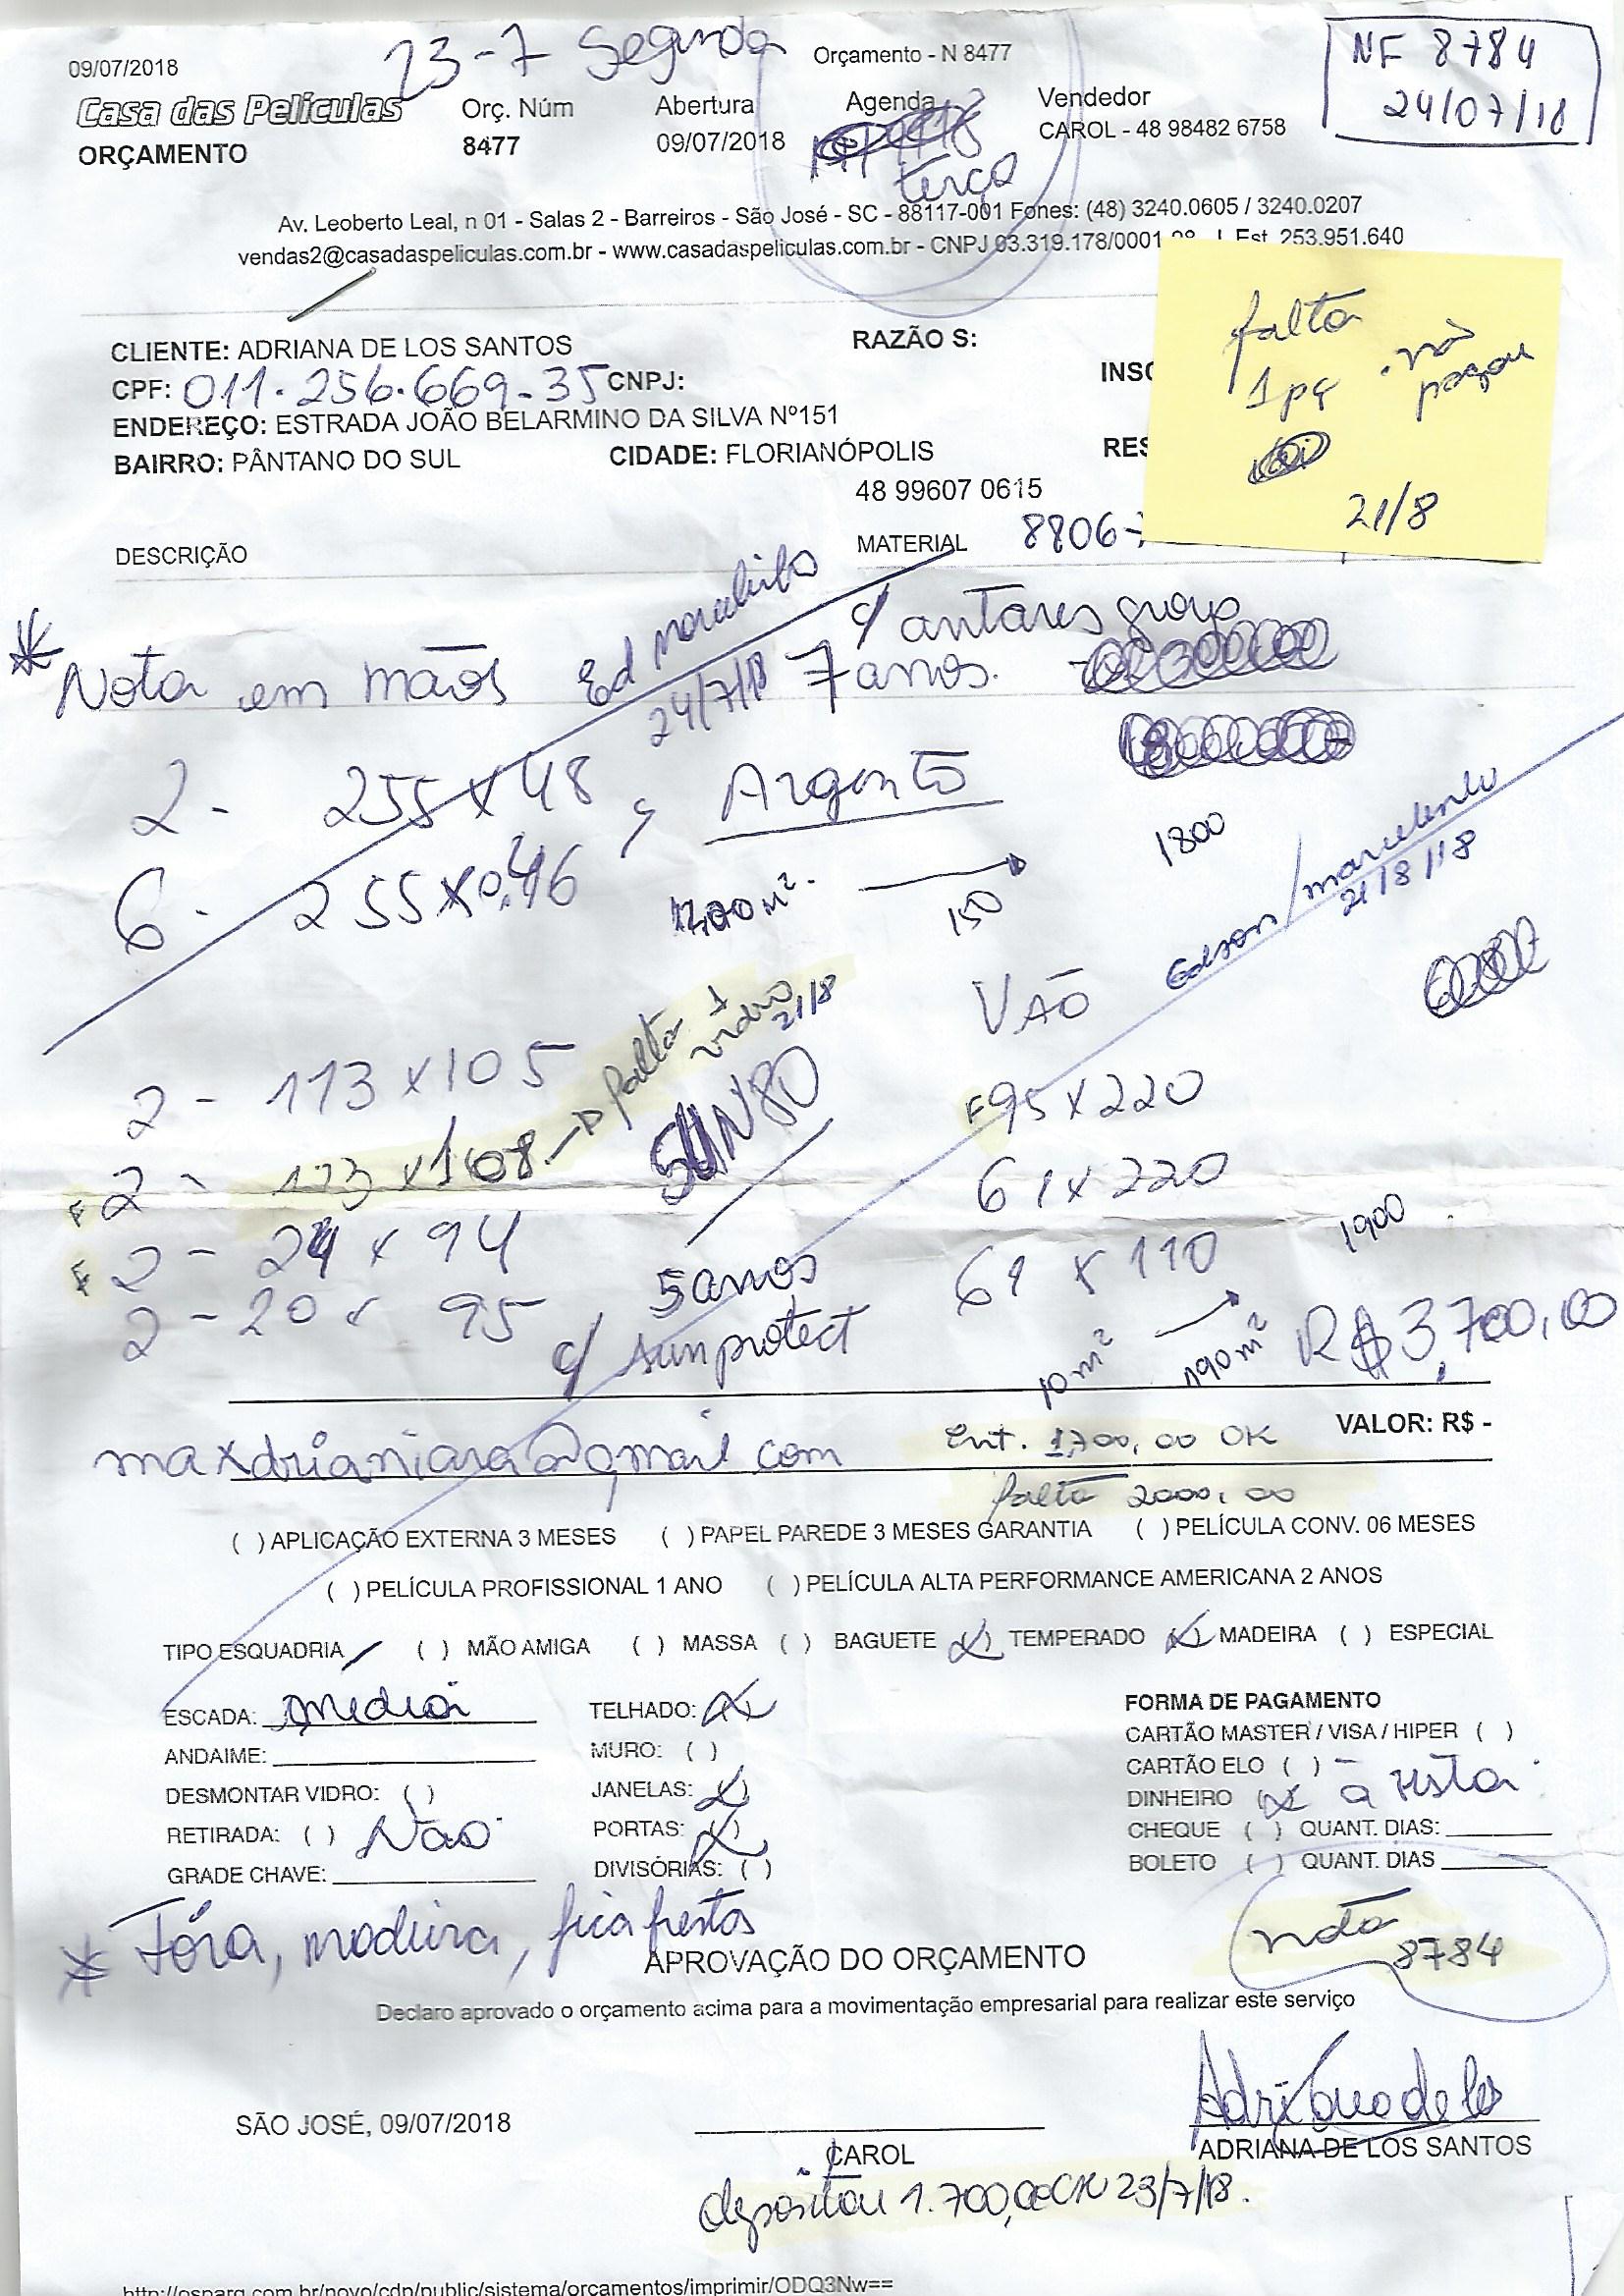 09/07/2018
23-7 Segunda
Orçamento - N 8477
NF 8784
24/07/18
Casa das Películas
Orç. Núm
Abertura
Agenda
Vendedor
ORÇAMENTO
8477
09/07/2018
CAROL - 48 98482 6758
terça
Av. Leoberto Leal, n 01 - Salas 2 - Barreiros - São José - SC - 88117-001 Fones: (48) 3240.0605 / 3240.0207
vendas2@casadaspeliculas.com.br - www.casadaspeliculas.com.br - CNPJ 03.319.178/0001 Est. 253.951.640
falta
1 pç . não pagou
21/8
CLIENTE: ADRIANA DE LOS SANTOS
RAZÃO S:
CPF: 011.256.669-35 CNPJ:
INSC
ENDEREÇO: ESTRADA JOÃO BELARMINO DA SILVA Nº151
BAIRRO: PÂNTANO DO SUL
CIDADE: FLORIANÓPOLIS
RES
48 99607 0615
DESCRIÇÃO
MATERIAL
8806-
c/ antares group
* Nota em mãos
Ed
24/7/18
7 anos.
2 - 255 x 48
Argento
6 - 255 x 0,46
150
1800
Edson/marcelinho
21/8/18
VÃO
2 - 113 x 105
falta 1 vidro 21/8
F 2 - 113 x 108
SUN80
F 95 x 220
F 2 - 24 x 94
61 x 220
2 - 20 x 95
5 anos
61 x 110
1900
c/ sunprotect
10 m² → 190 m²
R$ 3,700,00
VALOR: R$ -
maxdrianiara@gmail.com
Ent. 1,700,00 OK
falta 2000,00
( ) APLICAÇÃO EXTERNA 3 MESES ( ) PAPEL PAREDE 3 MESES GARANTIA ( ) PELÍCULA CONV. 06 MESES
( ) PELÍCULA PROFISSIONAL 1 ANO ( ) PELÍCULA ALTA PERFORMANCE AMERICANA 2 ANOS
TIPO ESQUADRIA ( ) MÃO AMIGA ( ) MASSA ( ) BAGUETE (X) TEMPERADO (X) MADEIRA ( ) ESPECIAL
ESCADA: media
TELHADO: (X)
FORMA DE PAGAMENTO
ANDAIME:
MURO: ( )
CARTÃO MASTER / VISA / HIPER ( )
DESMONTAR VIDRO: ( )
JANELAS: (X)
CARTÃO ELO ( )
RETIRADA: ( ) Não
PORTAS: (X)
DINHEIRO (X) à vista
GRADE CHAVE:
DIVISÓRIAS: ( )
CHEQUE ( ) QUANT. DIAS:
BOLETO ( ) QUANT. DIAS
* Fóra, madeira, fica frestas
nota 8784
APROVAÇÃO DO ORÇAMENTO
Declaro aprovado o orçamento acima para a movimentação empresarial para realizar este serviço
Adriana de los
SÃO JOSÉ, 09/07/2018
CAROL
ADRIANA DE LOS SANTOS
depositou 1.700,00 OK 23/7/18.
http://osparq.com.br/novo/cdp/public/sistema/orcamentos/imprimir/ODQ3Nw==